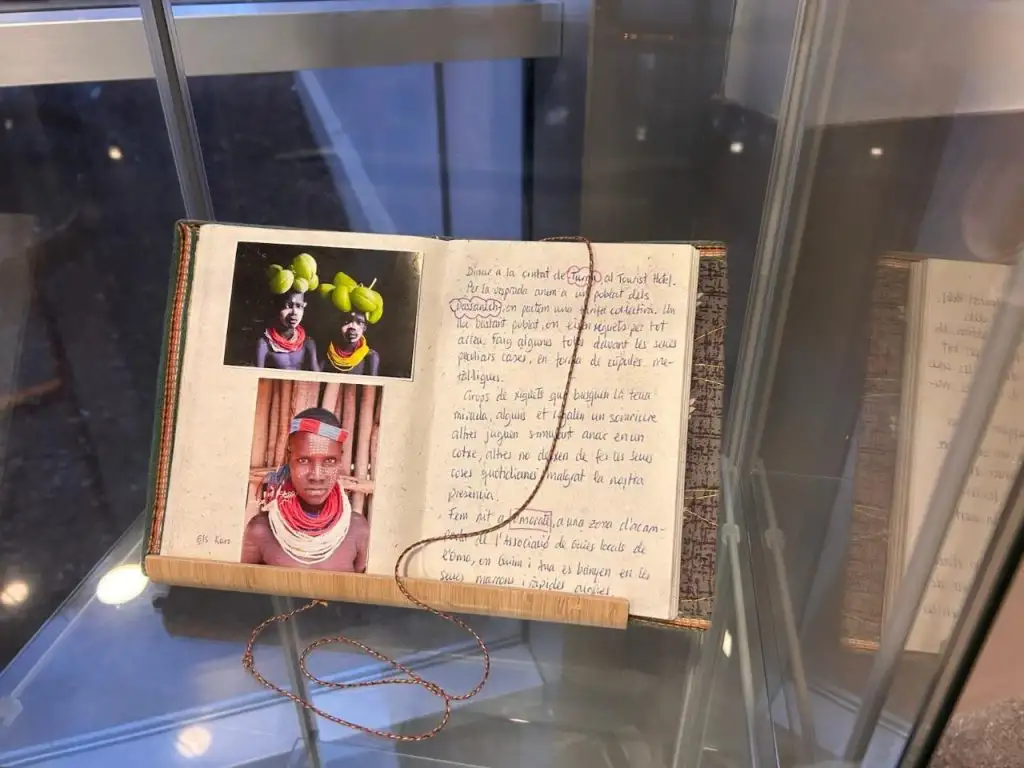 Els Karo
Dinar a la ciutat de Turmi al Tourist Hotel.
Per la vesprada anem a un poblat dels
Dassanech, on paguem una tarifa col·lectiva. Un
poblat, on ets seguits per tot
arreu. Faig algunes fotos davant les seues
peculiars cases, en forma de cúpules me-
tàl·liques.
Grups de xiquets que busquen la teua
mirada, alguns et regalen un somriure
altres juguen simulant anar en un
cotxe, altres no deixen de fer les seues
coses quotidianes malgrat la nostra
presència.
Fem nit a Omorate, a una zona d'acam-
pada de l'Associació de Guies locals de
l'Omo, on Guim i Ana es banyen en les
seues marrons i ràpides aigües